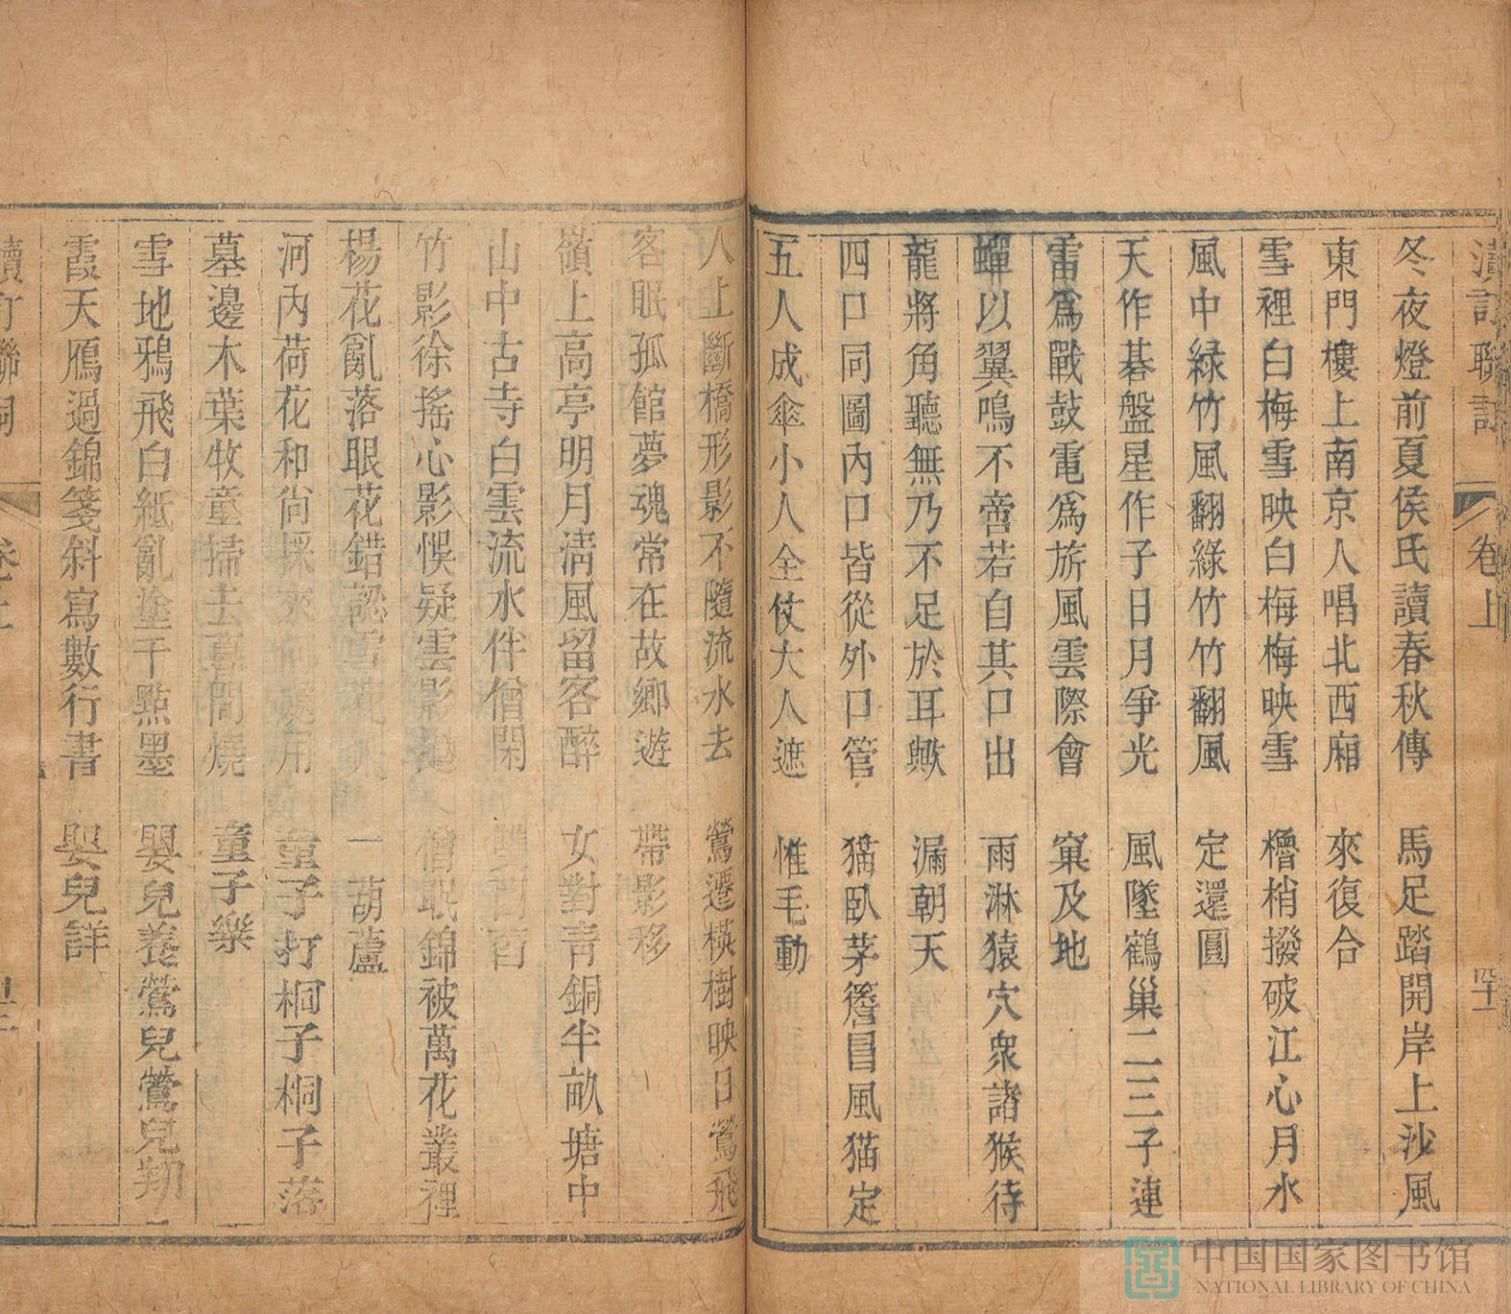 聯
卷上
冬夜燈前夏侯氏讀春秋傳　馬足踏開岸上沙風
東門樓上南京人唱北西廂　來復合
雪裡白梅雪映白梅梅映雪　櫓梢撥破江心月水
風中緑竹風翻綠竹竹翻風　定還圓
天作碁盤星作子日月爭光　風墜鶴巢二三子連
雷爲戰鼓電爲旂風雲際會　窠及地
蟬以翼鳴不啻若自其口出　雨淋猿穴衆諸猴待
龍將角聽無乃不足於耳歟　漏朝天
四口同圖內口皆從外口管　猫臥茅簷風猫定
五人成傘小人全仗大人遮　惟毛動
人止斷橋形影不隨流水去　鶯遷樹映日鶯飛
客眠孤館夢魂常在故鄉遊　帶影移
嶺上高亭明月清風留客醉　女對青銅半畝塘中
山中古寺白雲流水伴僧閑
竹影徐搖心影悞疑雲影　僧眠錦被萬花叢裡
楊花亂落眼花錯認　一葫蘆
河內荷花和尚採來　用　童子打桐子桐子落
墓邊木葉牧童掃去　間燒　童子樂
雪地鴉飛白紙亂塗千點墨　嬰兒養鶯兒鶯兒翔
霞天鴈過錦箋斜寫數行書　嬰兒詳
中国国家图书馆
NATIONAL LIBRARY OF CHINA